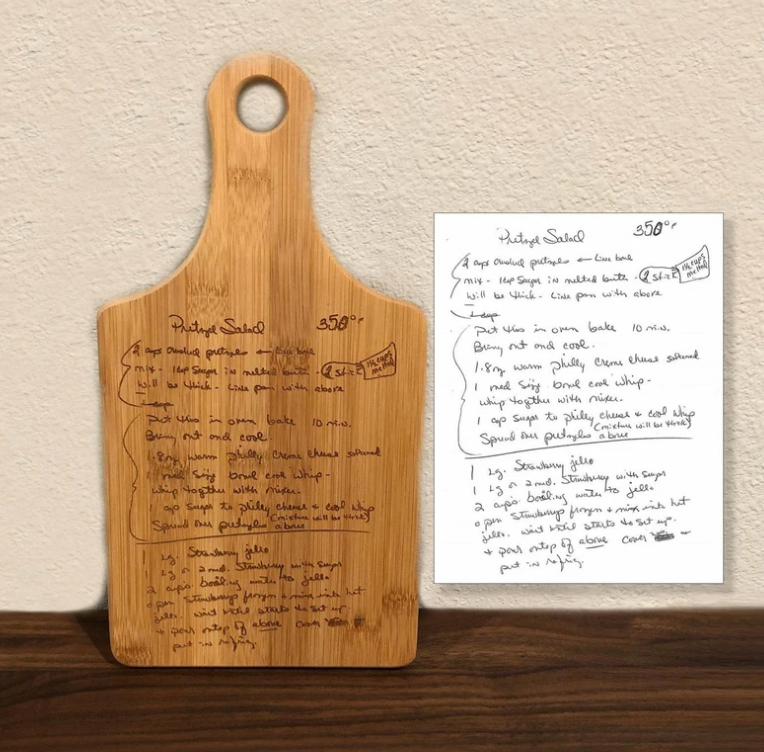 Pretzel Salad 350°F
2 cups crushed pretzels ← Line
mix - 1 cup Sugar in melted butter - 2 sticks 1½ cups melted
Will be thick - Line pan with above
Put this in oven bake 10 min.
Bring out and cool.
1. 8oz warm Philly Creme Cheese softened
1 med size bowl cool whip -
whip together with mixer.
1 cup Sugar to Philly cheese & cool whip
(mixture will be thick)
Spread over pretzels above
1 Lg. Strawberry jello
1 Lg or 2 med. Strawberry with sugar
2 cups boiling water to jello
open Strawberrys frozen & mix into hot
jello. wait until starts to set up.
+ pour ontop of above cover
put in refrig.
Pretzel Salad 350°F
2 cups crushed pretzels ← Line
mix - 1 cup Sugar in melted butter - 2 sticks 1½ cups melted
Will be thick - Line pan with above
Put this in oven bake 10 min.
Bring out and cool.
1. 8oz warm Philly Creme Cheese softened
1 med size bowl cool whip -
whip together with mixer.
1 cup Sugar to Philly cheese & cool whip
(mixture will be thick)
Spread over pretzels above
Lg. Strawberry jello
Lg or 2 med. Strawberry with sugar
2 cups boiling water to jello
open Strawberrys frozen & mix into hot
jello. wait until starts to set up.
+ pour ontop of above cover
put in refrig.